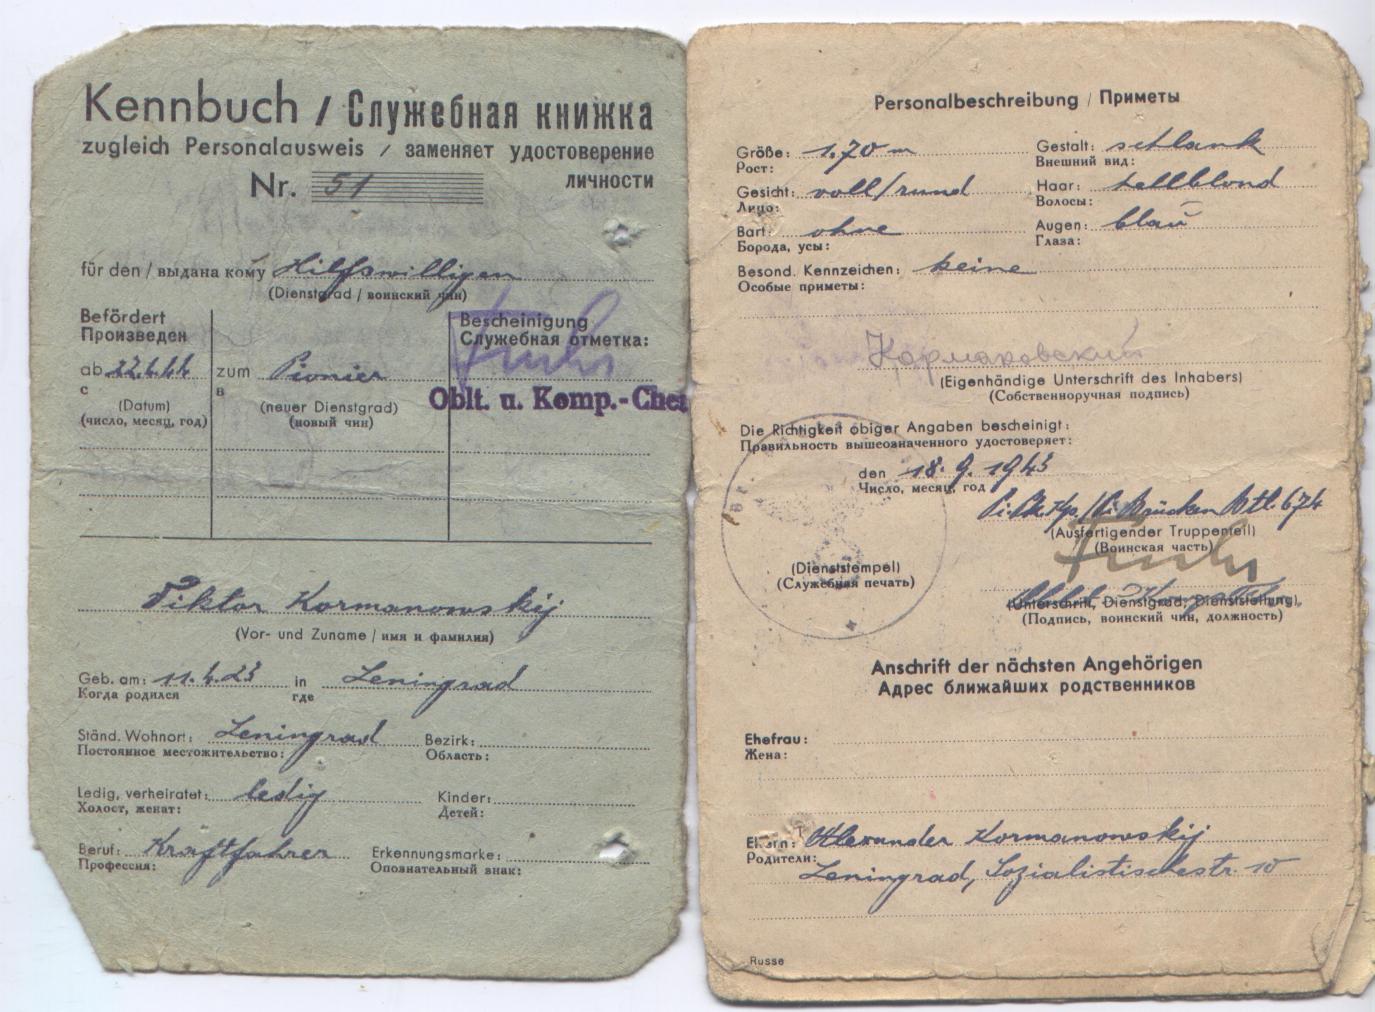 Kennbuch / Служебная книжка
zugleich Personalausweis / заменяет удостоверение
Nr. 51 личности
für den / выдана кому Hilfswilligen
(Dienstgrad / воинский чин)
Befördert
Произведен
Bescheinigung
Служебная отметка:
ab 22.4.44 zum Pionier
с в
Oblt. u. Komp.-Chef
(Datum) (neuer Dienstgrad)
(число, месяц, год) (новый чин)
Viktor Kormanowskij
(Vor- und Zuname / имя и фамилия)
Geb. am: 11.4.23 in Leningrad
Когда родился где
Ständ. Wohnort: Leningrad Bezirk:
Постоянное местожительство: Область:
Ledig, verheiratet: ledig Kinder:
Холост, женат: Детей:
Beruf: Kraftfahrer Erkennungsmarke:
Профессия: Опознательный знак:
Personalbeschreibung / Приметы
Größe: 1.70 m Gestalt: schlank
Рост: Внешний вид:
Gesicht: voll/rund Haar: hellblond
Лицо: Волосы:
Bart: ohne Augen: blau
Борода, усы: Глаза:
Besond. Kennzeichen: keine
Особые приметы:
(Eigenhändige Unterschrift des Inhabers)
(Собственноручная подпись)
Die Richtigkeit obiger Angaben bescheinigt:
Правильность вышеозначенного удостоверяет:
den 18.9.1943
Число, месяц, год
Brücken Btl. 674
(Ausfertigender Truppenteil)
(Воинская часть)
(Dienststempel)
(Служебная печать)
(Unterschrift, Dienstgrad, Dienststellung)
(Подпись, воинский чин, должность)
Anschrift der nächsten Angehörigen
Адрес ближайших родственников
Ehefrau:
Жена:
Eltern: Alexander Kormanowskij
Родители:
Leningrad, Sozialistischestr. 10
Russe